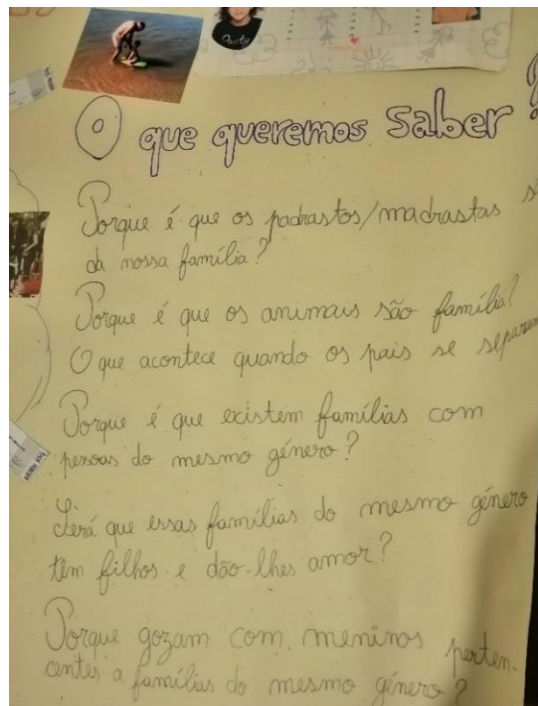 O que queremos saber?
Porque é que os padrastos/madrastas s
da nossa família?
Porque é que os animais são família?
O que acontece quando os pais se separam
Porque é que existem famílias com
pessoas do mesmo género?
Será que essas famílias do mesmo género
têm filhos e dão-lhes amor?
Porque gozam com meninos perten-
centes a famílias do mesmo género?